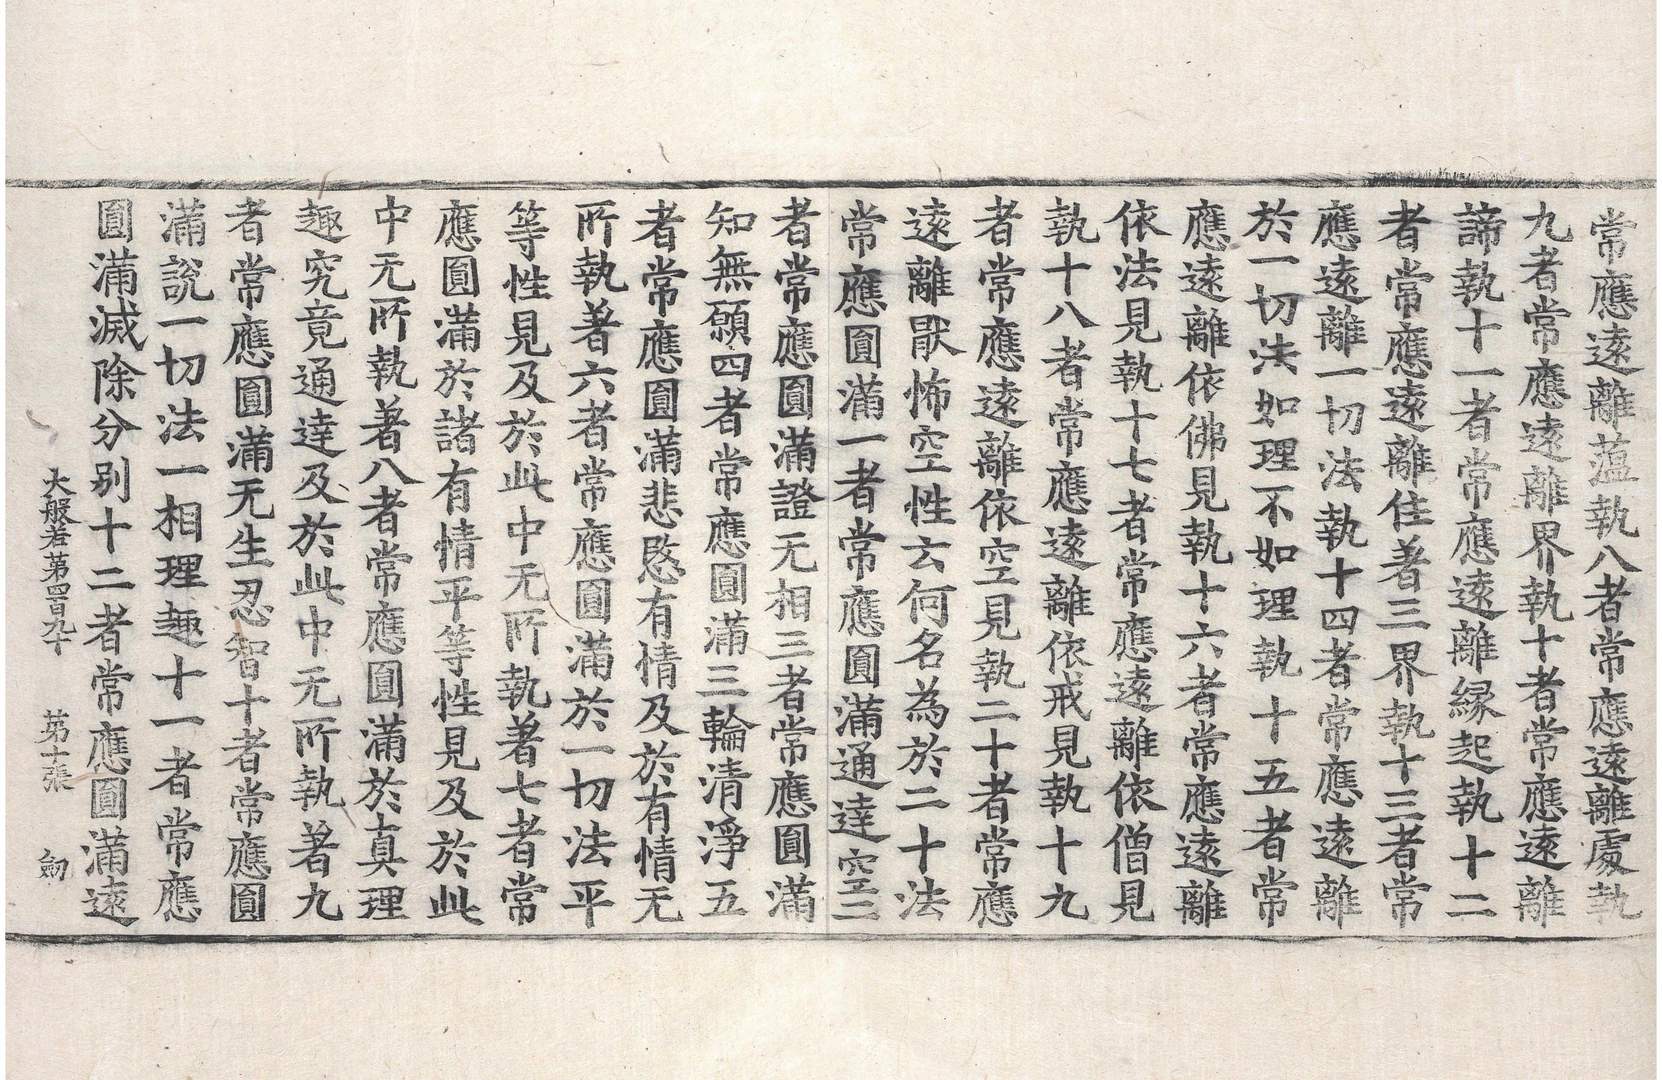 常應遠離蕰執八者常應遠離處執
九者常應遠離界執十者常應遠離
諦執十一者常應遠離緣起執十二
者常應遠離住著三界執十三者常
應遠離一切法執十四者常應遠離
於一切法如理不如理執十五者常
應遠離依佛見執十六者常應遠離
依法見執十七者常應遠離依僧見
執十八者常應遠離依戒見執十九
者常應遠離依空見執二十者常應
遠離猒怖空性云何名為於二十法
常應圓滿一者常應圓滿通達空二
者常應圓滿證无相三者常應圓滿
知無願四者常應圓滿三輪清淨五
者常應圓滿悲愍有情及於有情无
所執著六者常應圓滿於一切法平
等性見及於此中无所執著七者常
應圓滿於諸有情平等性見及於此
中无所執著八者常應圓滿於真理
趣究竟通達及於此中无所執著九
者常應圓滿无生忍智十者常應圓
滿說一切法一相理趣十一者常應
圓滿滅除分別十二者常應圓滿遠
大般若第四百九十 第十張 劒